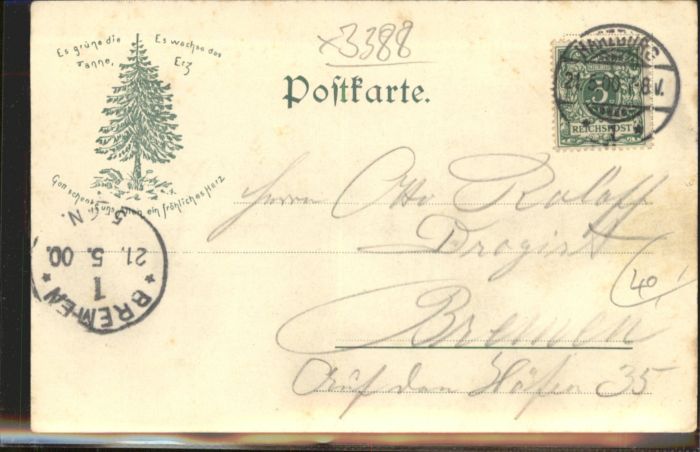 Es grüne die Tanne,
Es wachse das Erz
Gott schenke uns allen ein fröhliches Herz
x3388
Postkarte.
HARZBURG
21.5.00 7-8V.
* 1 *
5
REICHSPOST
Herrn Otto Roloff
Drogist
Bremen
Auf den Häfen 35
40
BREMEN
1
21. 5. 00.
5-6 N.